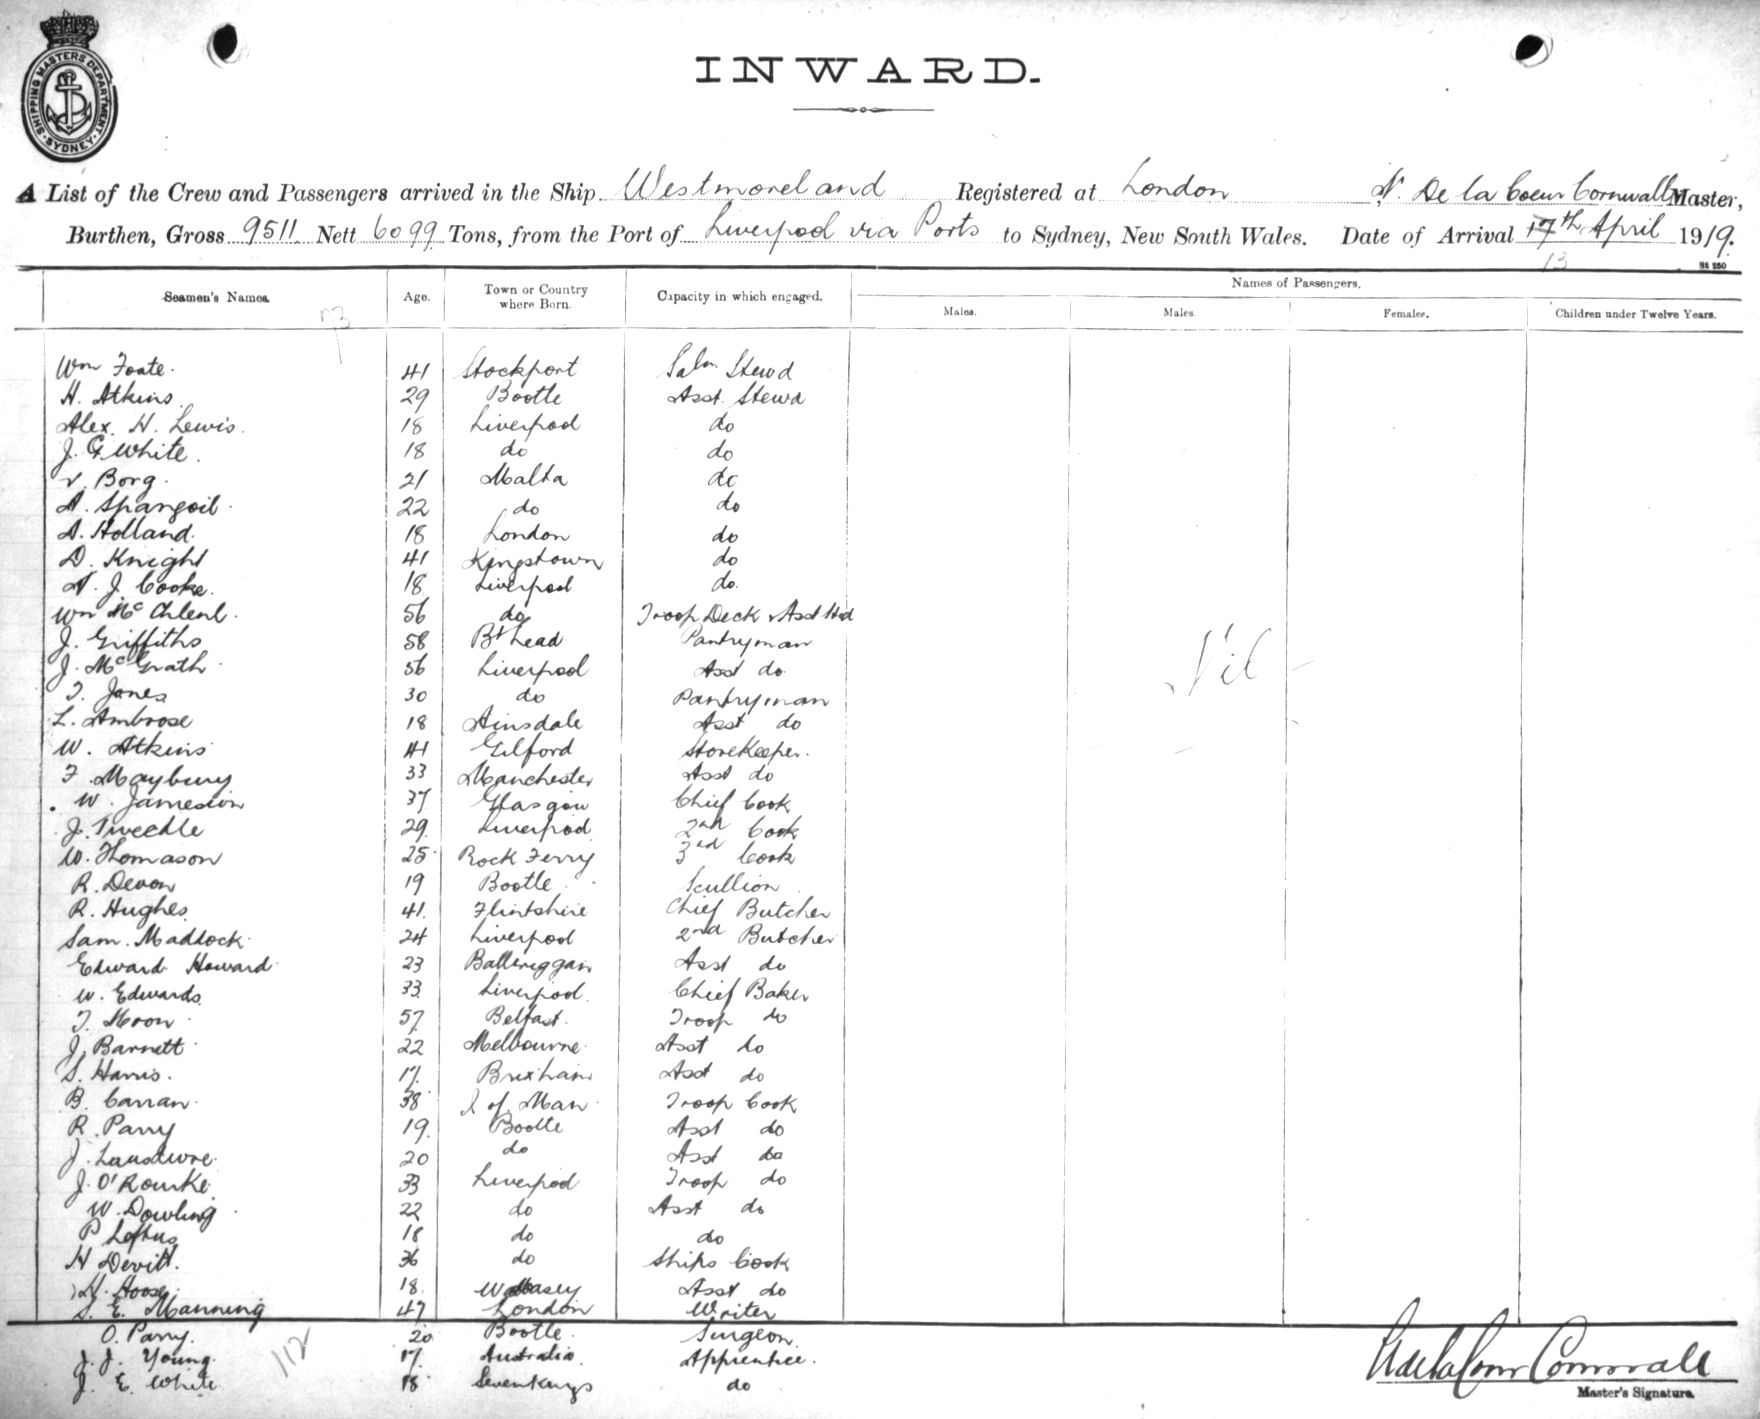 SHIPPING MASTERS DEPARTMENT
SYDNEY
INWARD.
A List of the Crew and Passengers arrived in the Ship Westmoreland Registered at London N. De la Coeur Cornwall Master,
Burthen, Gross 9511 Nett 6099 Tons, from the Port of Liverpool via Ports to Sydney, New South Wales. Date of Arrival 17th April 1919.
13
St 250
Seamen's Names. Age. Town or Country where Born. Capacity in which engaged. Names of Passengers.
Males. Males. Females. Children under Twelve Years.
73
Wm Foate. 41 Stockport Saln. Stewd
H. Atkins. 29 Bootle Asst. Stewd
Alex. H. Lewis. 18 Liverpool do
J. G. White. 18 do do
V. Borg. 21 Malta do
A. Spangoil. 22 do do
A. Holland. 18 London do
D. Knight 41 Kingstown do
N. J. Cooke. 18 Liverpool do.
Wm Mc 56 do Troop Deck Asst Std
J. Griffiths 58 B'head Pantryman
J. McGrath 56 Liverpool Asst do
T. Jones 30 do Pantryman
L. Ambrose 18 Ainsdale Asst do
W. Atkins 41 Gilford Storekeeper.
F. Maybury 33 Manchester Asst do
W. Jameson 37 Glasgow Chief Cook
J. Tweedle 29 Liverpool 2nd Cook
W. Thomason 25 Rock Ferry 3rd Cook
R. Devon 19 Bootle Scullion
R. Hughes 41 Flintshire Chief Butcher
Sam. Maddock 24 Liverpool 2nd Butcher
Edward Howard 23 Balbriggan Asst do
W. Edwards 33 Liverpool Chief Baker
T. Moon 57 Belfast. Troop do
J. Barnett 22 Melbourne Asst do
S. Harris. 17 Brixham Asst do
B. Carran 38 I of Man Troop Cook
R. Parry 19 Bootle Asst do
J. 20 do Asst do
J. O'Rourke 33 Liverpool Troop do
W. Dowling 22 do Asst do
P Loftus 18 do do
H Devitt. 36 do Ships Cook
H. Hoose 18. Wallasey Asst do
S. E. Manning 47 London Writer
O. Parry. 20 Bootle. Surgeon.
J. J. Young. 17 Australia. Apprentice.
J. E. White 18 Seven Kings do
Nil
112
N de la Coeur Cornwall
Master's Signature.